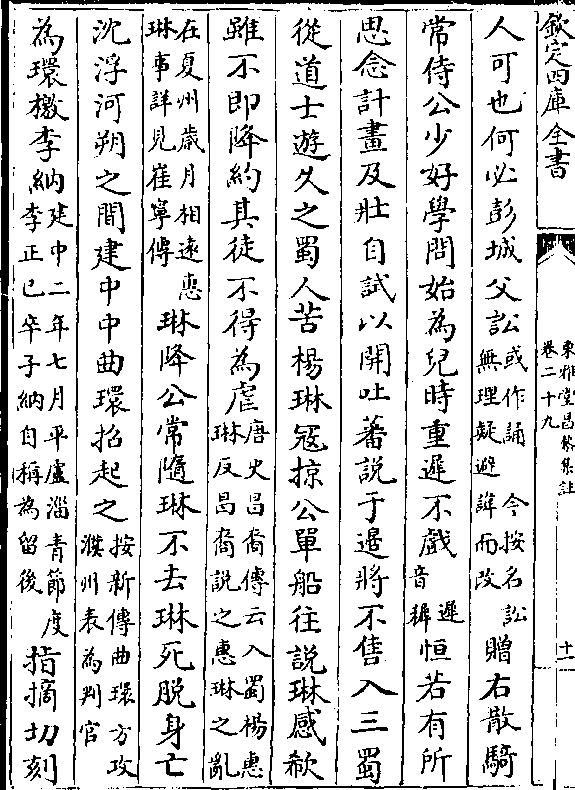 欽定四庫全書
東雅堂昌黎集註
卷二十九
十一
人可也何必彭城父訟或作誦今按名訟無理疑避諱而改贈右散騎
常侍公少好學問始為兒時重遲不戲遲音穉恒若有所
思念計畫及壯自試以開吐蕃說于邊將不售入三蜀
從道士遊久之蜀人苦楊琳寇掠公單船往說琳感欷
雖不即降約其徒不得為虐唐史昌裔傳云入蜀楊惠琳反昌裔說之惠琳之亂
在夏州歲月相遠惠琳事詳見崔寧傳琳降公常隨琳不去琳死脫身亡
沈浮河朔之間建中中曲環招起之按新傳曲環方攻濮州表為判官
為環檄李納建中二年七月平盧淄青節度李正已卒子納自稱為留後指摘切刻